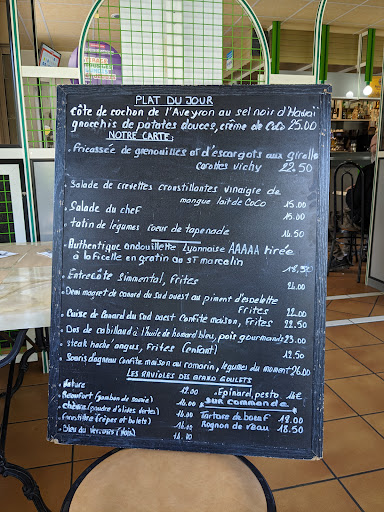 PLAT DU JOUR
Côte de cochon de l'Aveyron au sel noir d'Hawaï
gnocchis de patates douces, crème de Coco 25.00
NOTRE CARTE:
. Fricassée de grenouilles et d'escargots aux girolle
carottes vichy 22.50
. Salade de crevettes croustillantes vinaigre de
mangue lait de coco 15.00
. Salade du chef 15.00
tatin de légumes coeur de tapenade 14.50
. Authentique andouillette Lyonnaise AAAAA tirée
à la ficelle en gratin au St marcelin 18,50
. Entrecôte Simmental, Frites 26.00
. Demi magret de canard du Sud ouest au piment d'espelette
Frites 22.00
. Cuisse de Canard du Sud ouest confite maison, Frites 22.50
. Dos de cabillaud à l'huile de homard bleu, pois gourmands 23.00
. Steak haché angus, Frites (enfant) 12.50
. Souris d'agneau confite maison au romarin, légumes du moment 26.00
LES RAVIOLES DES
Nature 12.00
Beaufort (jambon de savoie) 14.00
Chèvre (poudre d'olives vertes) 14.00
Forestière (cèpes et bolets) 14.00
Bleu du Vercors (noix) 14.00
. Epinard, pesto 14€
SUR COMMANDE
Tartare de boeuf 18.00
Rognon de veau 18.50